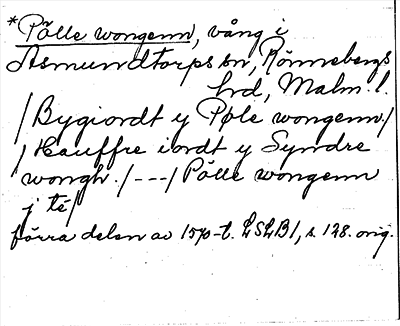 *Pölle wongenn, vång i
Asmundtorps sn, Rönnebergs
hrd, Malm. l.
/Bygiordt y Pøle wongenn/
/Hauffre iordt y Syndre
wongh./---/Pölle wongenn
j té/
förra delen av 1570-t. LSLB1, s. 128. orig.